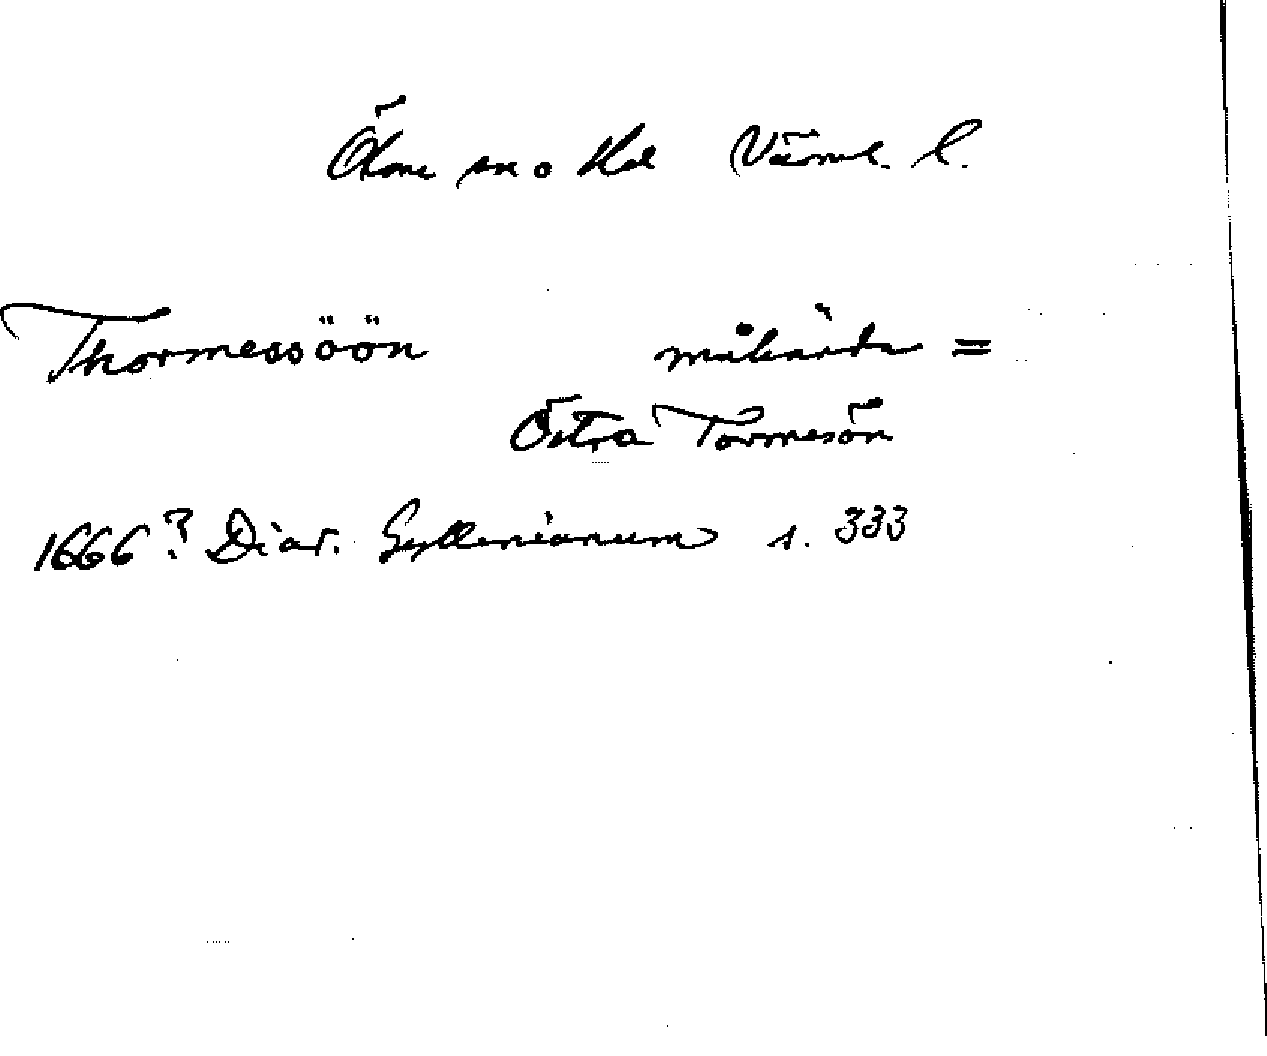 Ölme sn o hd Värml. l.
Thormessöön måhända =
Östra Tormesön
1666? Diar. Gyllenianum s. 333